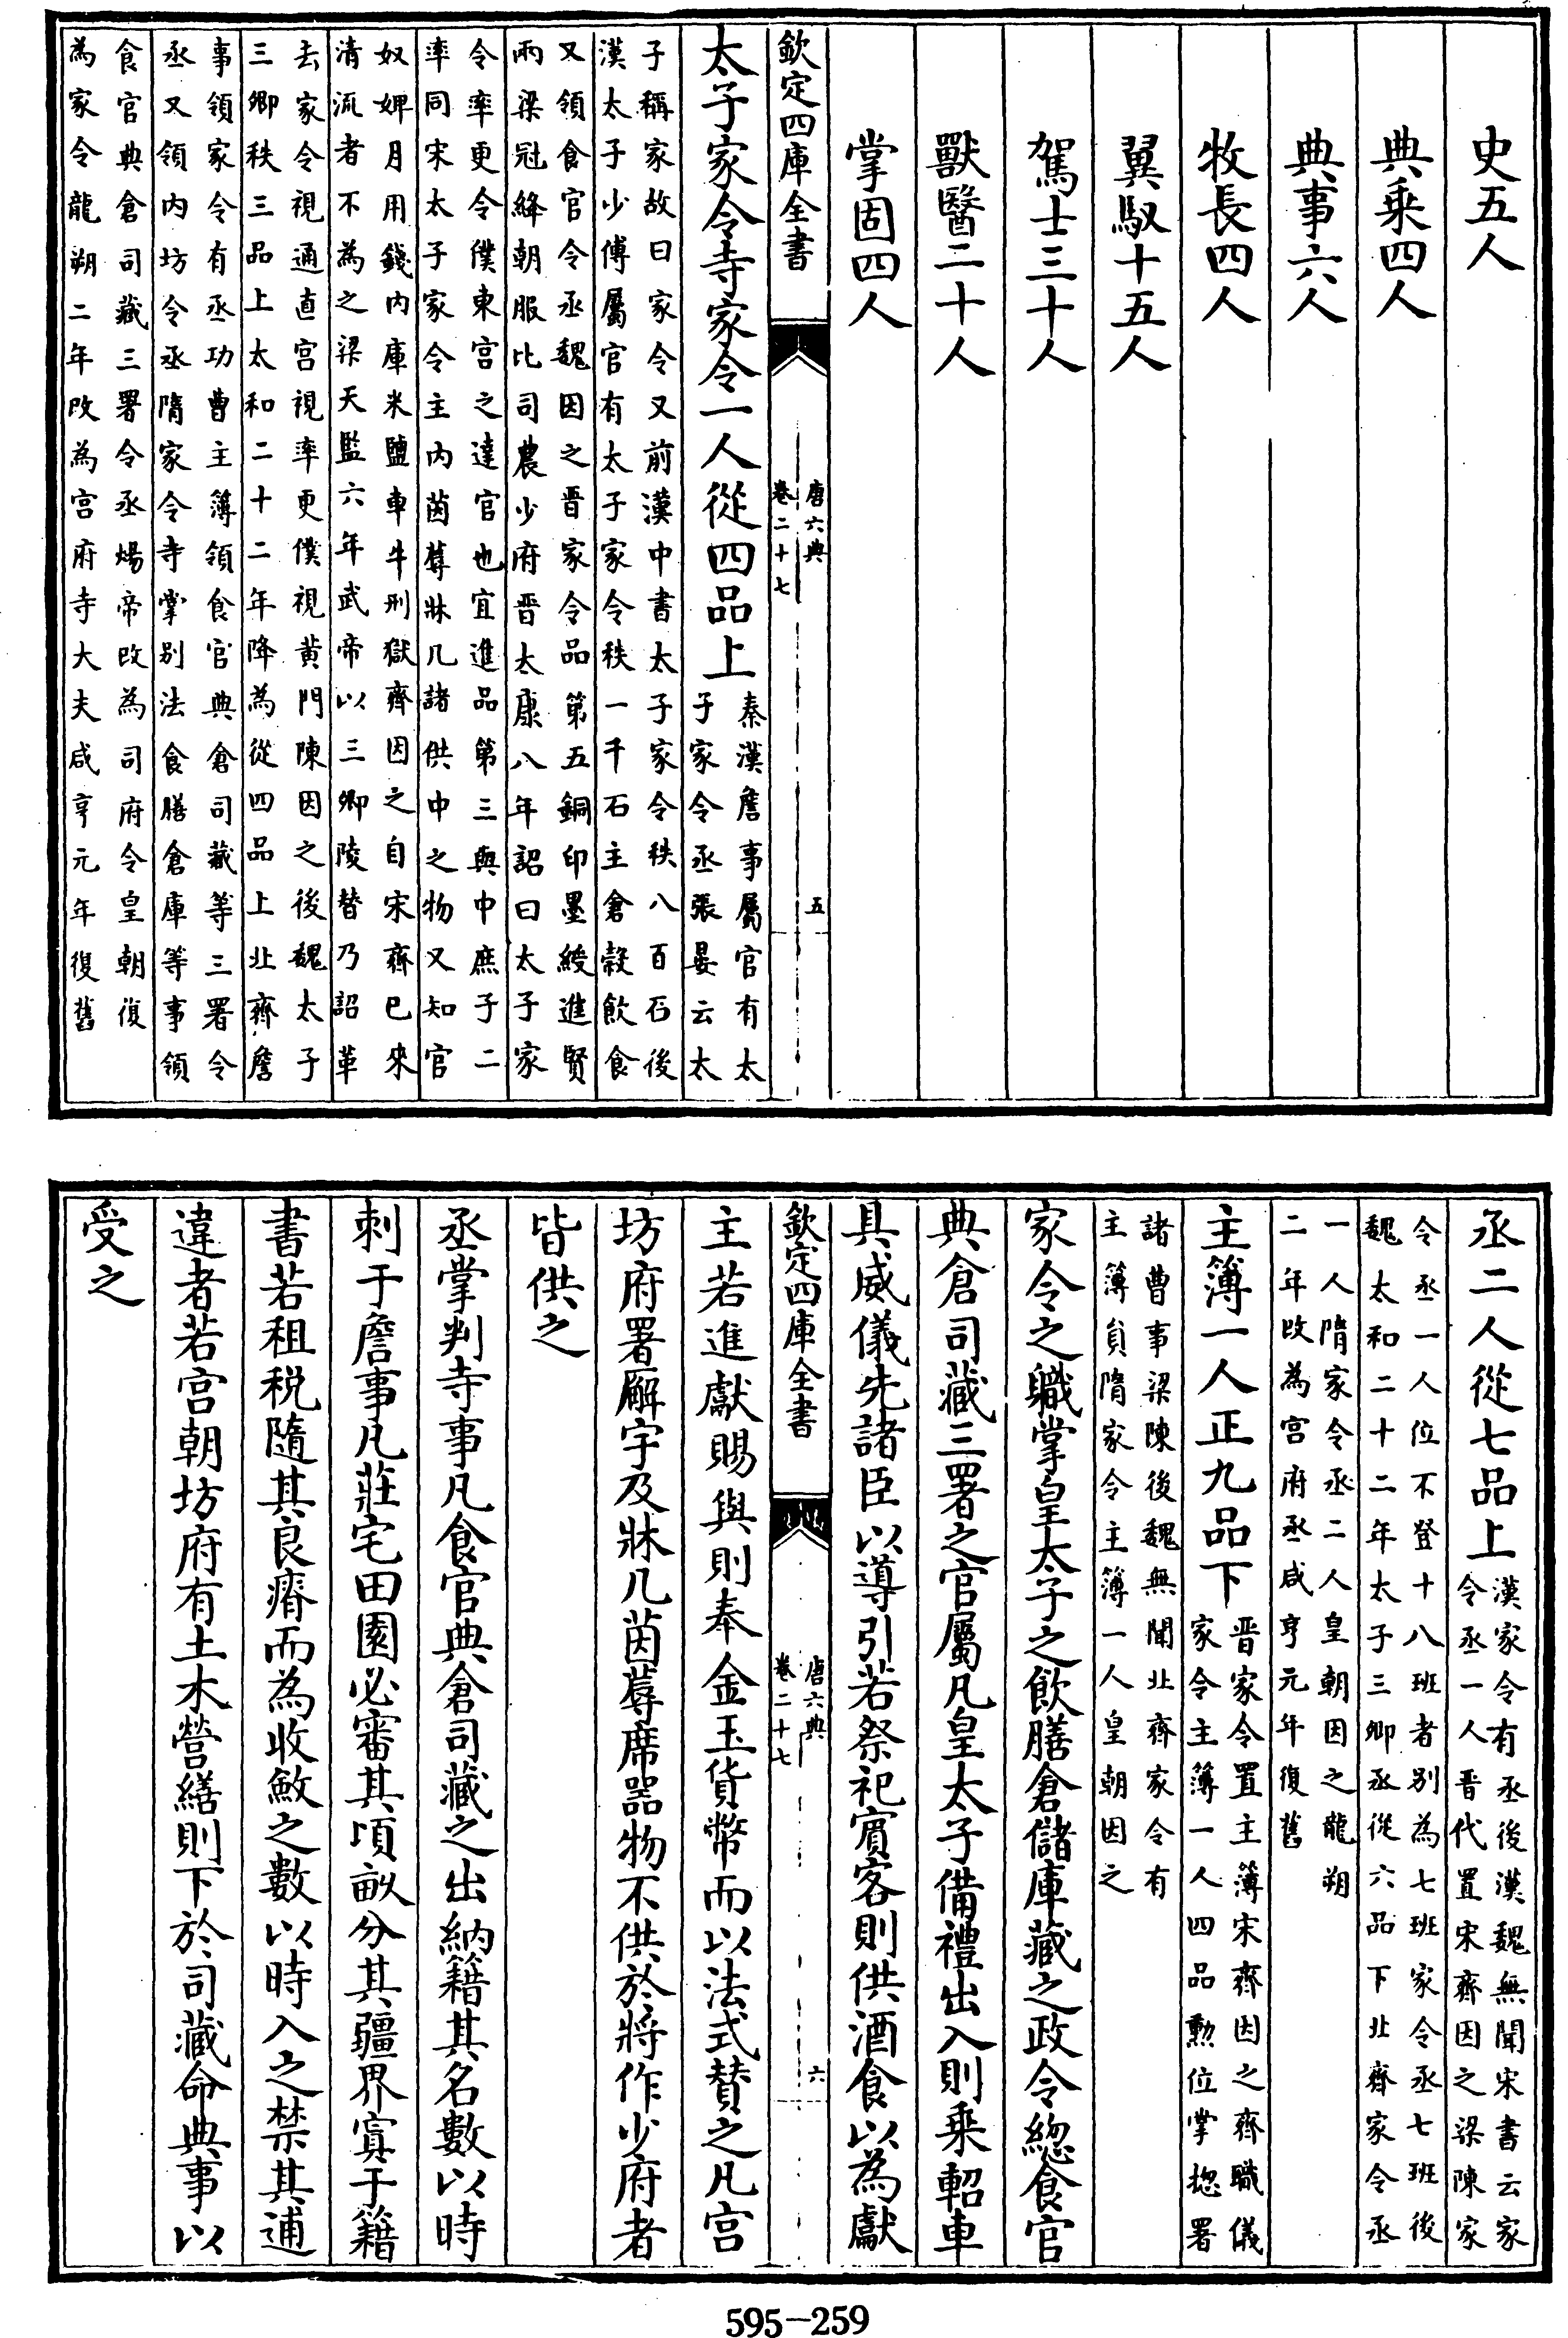 史五人
典乗四人
典事六人
牧長四人
翼馭十五人
駕士三十人
獸醫二十人
掌固四人
欽定四庫全書
唐六典
卷二十七
五
太子家令寺家令一人從四品上
秦漢詹事屬官有太
子家令丞張晏云太
子稱家故曰家令又前漢中書太子家令秩八百石後
漢太子少傅屬官有太子家令秩一千石主倉穀飲食
又領食官令丞魏因之晋家令品第五銅印墨綬進賢
兩梁冠絳朝服比司農少府晋太康八年詔曰太子家
令率更令僕東宫之達官也宜進品第三與中庶子二
率同宋太子家令主内茵蓐牀几諸供中之物又知官
奴婢月用錢内庫米鹽車牛刑獄齊因之自宋齊已來
清流者不為之梁天監六年武帝以三卿陵替乃詔革
去家令視通直宫視率更僕視黄門陳因之後魏太子
三卿秩三品上太和二十二年降為從四品上北齊詹
事領家令有丞功曹主簿領食官典倉司藏等三署令
丞又領内坊令丞隋家令寺掌别法食膳倉庫等事領
食官典倉司藏三署令丞煬帝改為司府令皇朝復
為家令龍朔二年改為宫府寺大夫咸亨元年復舊
丞二人從七品上
漢家令有丞後漢魏無聞宋書云家
令丞一人晋代置宋齊因之梁陳家
令丞一人位不登十八班者别為七班家令丞七班後
魏太和二十二年太子三卿丞從六品下北齊家令丞
一人隋家令丞二人皇朝因之龍朔
二年改為宫府丞咸亨元年復舊
主簿一人正九品下
晋家令置主簿宋齊因之齊職儀
家令主簿一人四品勲位掌揔署
諸曹事梁陳後魏無聞北齊家令有
主簿員隋家令主簿一人皇朝因之
家令之職掌皇太子之飲膳倉儲庫藏之政令總食官
典倉司藏三署之官屬凡皇太子備禮出入則乗軺車
具威儀先諸臣以導引若祭祀賓客則供酒食以為獻
欽定四庫全書
唐六典
卷二十七
六
主若進獻賜與則奉金玉貨幣而以法式賛之凡宫
坊府署廨宇及牀几茵蓐席器物不供於將作少府者
皆供之
丞掌判寺事凡食官典倉司藏之出納籍其名數以時
刺于詹事凡莊宅田園必審其頃畝分其疆界寘于籍
書若租税隨其良瘠而為收斂之數以時入之禁其逋
違者若宫朝坊府有土木營繕則下於司藏命典事以
受之
595-259